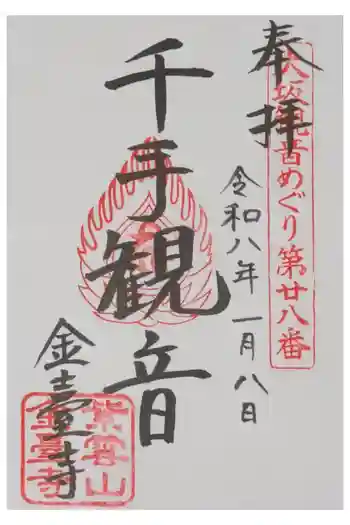 奉拝
大坂観音めぐり第廿八番
令和八年一月八日
千手観音
金臺寺
紫雲山
金臺寺